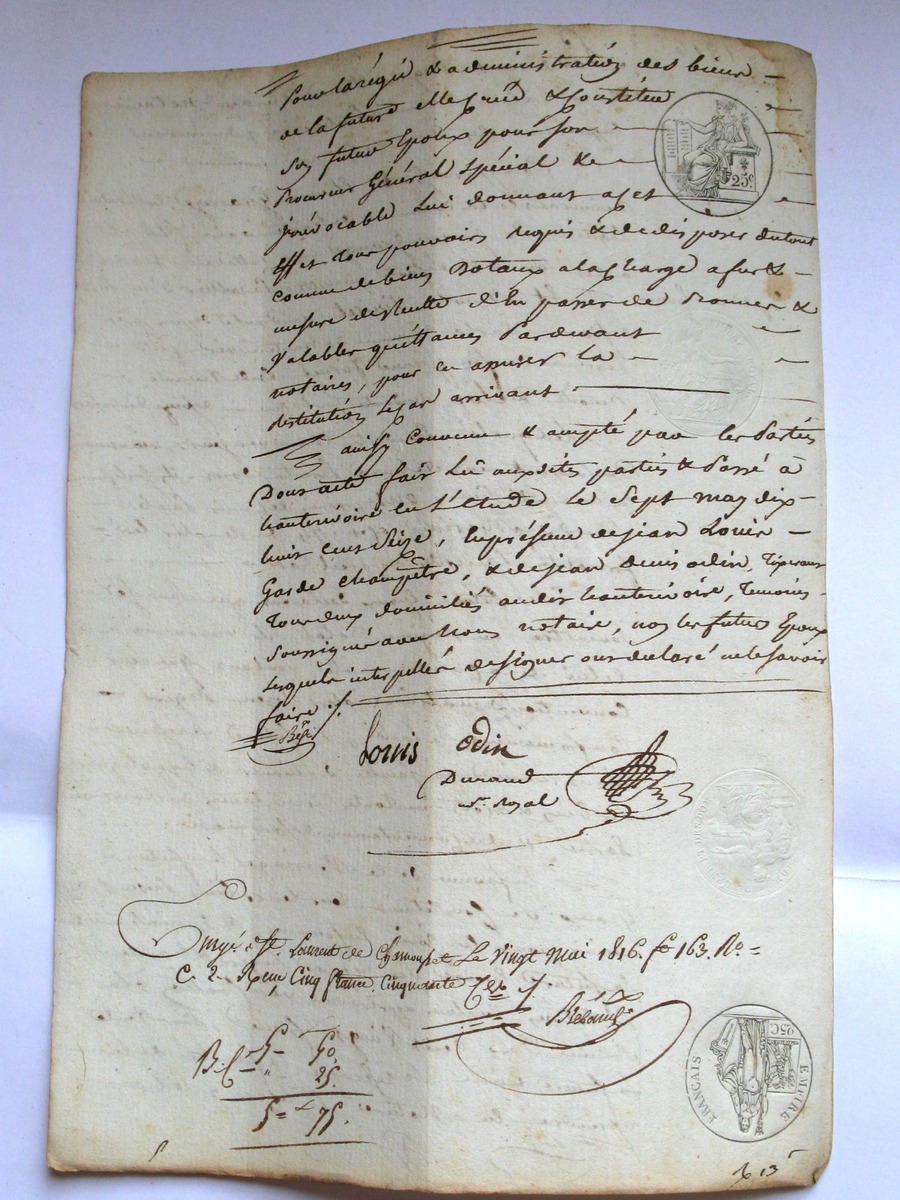 Pour la régie & administration des biens
de la future elle crée & Constitue
son futur Epoux pour son
Procureur Général spécial &
jrrévocable Lui donnant a cet
Effet tous pouvoirs requis & de disposer du tout
comme de biens Dotaux a la charge a fur &
mesure de Recette d'En passer de Bonnes &
Valables quittances Pardevant
notaires, pour en assurer la
Restitution le cas arrivant
ainsy Convenu & accepté par les Parties
Dont acte fait Lû auxdites parties & Passé à
hauterivoire en L'Etude le Sept may dix-
huit cent Seize, En présence de jean Louis
Garde champêtre, & de jean denis odin,
Tous deux domiciliés audit hauterivoire, Temoins
Soussignés avec Nous notaire, non les futurs Epoux
Lesquels interpellés de signer ont declaré ne le savoir
faire ./.
Louis Odin
Durand
nre. Royal
25c.
St. Laurent de Chamousset Le Vingt Mai 1816. fo 163. Ro.
C. 2. Reçu Cinq francs, Cinquante
5 50
25
5 75
25C
EMPIRE FRANÇAIS